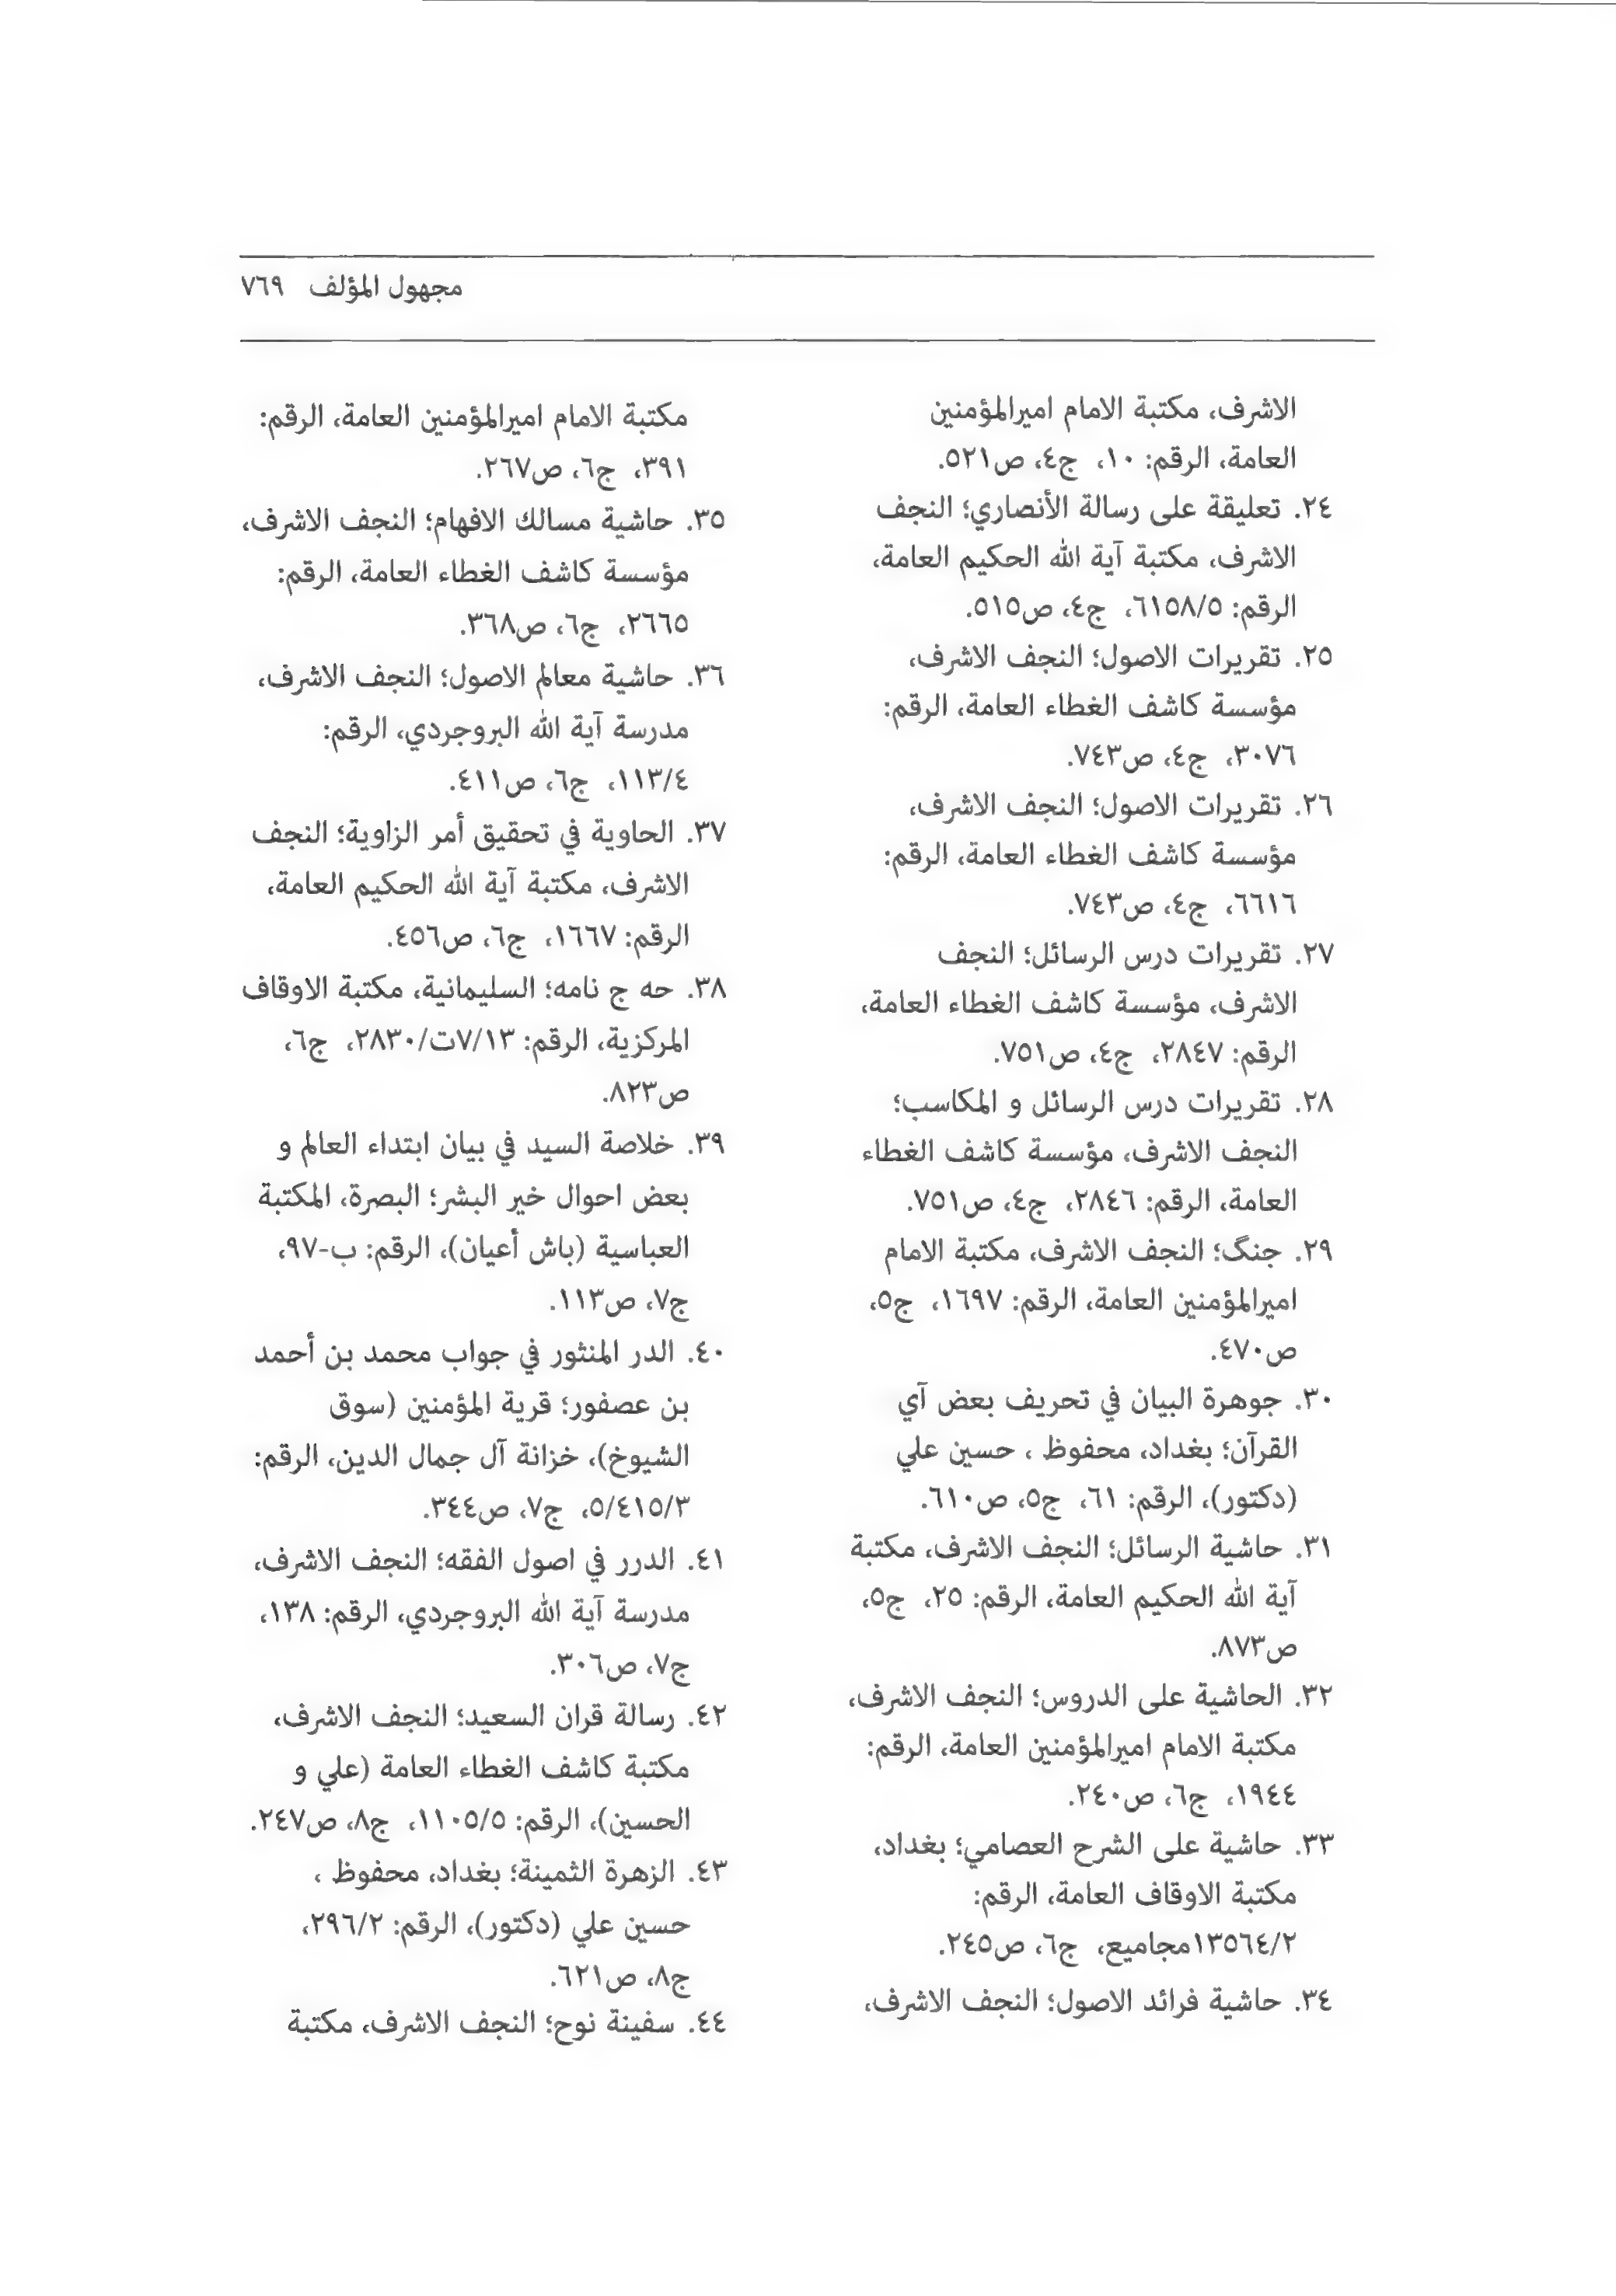 مجهول المؤلف ٧٦٩
الاشرف، مكتبة الامام اميرالمؤمنين
العامة، الرقم: ١٠، ج٤، ص٥٢١.
٢٤. تعليقة على رسالة الأنصاري؛ النجف
الاشرف، مكتبة آية الله الحكيم العامة،
الرقم: ٦١٥٨/٥، ج٤، ص٥١٥.
٢٥. تقريرات الاصول؛ النجف الاشرف،
مؤسسة كاشف الغطاء العامة، الرقم:
٣٠٧٦، ج٤، ص٧٤٣.
٢٦. تقريرات الاصول؛ النجف الاشرف،
مؤسسة كاشف الغطاء العامة، الرقم:
٦٦١٦، ج٤، ص٧٤٣.
٢٧. تقريرات درس الرسائل؛ النجف
الاشرف، مؤسسة كاشف الغطاء العامة،
الرقم: ٢٨٤٧، ج٤، ص٧٥١.
٢٨. تقريرات درس الرسائل و المكاسب؛
النجف الاشرف، مؤسسة كاشف الغطاء
العامة، الرقم: ٢٨٤٦، ج٤، ص٧٥١.
٢٩. جنگ؛ النجف الاشرف، مكتبة الامام
اميرالمؤمنين العامة، الرقم: ١٦٩٧، ج٥،
ص٤٧٠.
٣٠. جوهرة البيان في تحريف بعض آي
القرآن؛ بغداد، محفوظ ، حسين علي
(دكتور)، الرقم: ٦١، ج٥، ص٦١٠.
٣١. حاشية الرسائل؛ النجف الاشرف، مكتبة
آية الله الحكيم العامة، الرقم: ٢٥، ج٥،
ص٨٧٣.
٣٢. الحاشية على الدروس؛ النجف الاشرف،
مكتبة الامام اميرالمؤمنين العامة، الرقم:
١٩٤٤، ج٦، ص٢٤٠.
٣٣. حاشية على الشرح العصامي؛ بغداد،
مكتبة الاوقاف العامة، الرقم:
١٣٥٦٤/٢مجاميع، ج٦، ص٢٤٥.
٣٤. حاشية فرائد الاصول؛ النجف الاشرف،
مكتبة الامام اميرالمؤمنين العامة، الرقم:
٣٩١، ج٦، ص٢٦٧.
٣٥. حاشية مسالك الافهام؛ النجف الاشرف،
مؤسسة كاشف الغطاء العامة، الرقم:
٢٦٦٥، ج٦، ص٣٦٨.
٣٦. حاشية معالم الاصول؛ النجف الاشرف،
مدرسة آية الله البروجردي، الرقم:
١١٣/٤، ج٦، ص٤١١.
٣٧. الحاوية في تحقيق أمر الزاوية؛ النجف
الاشرف، مكتبة آية الله الحكيم العامة،
الرقم: ١٦٦٧، ج٦، ص٤٥٦.
٣٨. حه ج نامه؛ السليمانية، مكتبة الاوقاف
المركزية، الرقم: ٧/١٣ت/٢٨٣٠، ج٦،
ص٨٢٣.
٣٩. خلاصة السيد في بيان ابتداء العالم و
بعض احوال خير البشر؛ البصرة، المكتبة
العباسية (باش أعيان)، الرقم: ب-٩٧،
ج٧، ص١١٣.
٤٠. الدر المنثور في جواب محمد بن أحمد
بن عصفور؛ قرية المؤمنين (سوق
الشيوخ)، خزانة آل جمال الدين، الرقم:
٥/٤١٥/٣، ج٧، ص٣٤٤.
٤١. الدرر في اصول الفقه؛ النجف الاشرف،
مدرسة آية الله البروجردي، الرقم: ١٣٨،
ج٧، ص٣٠٦.
٤٢. رسالة قران السعيد؛ النجف الاشرف،
مكتبة كاشف الغطاء العامة (علي و
الحسين)، الرقم: ١١٠٥/٥، ج٨، ص٢٤٧.
٤٣. الزهرة الثمينة؛ بغداد، محفوظ ،
حسين علي (دكتور)، الرقم: ٢٩٦/٢،
ج٨، ص٦٢١.
٤٤. سفينة نوح؛ النجف الاشرف، مكتبة